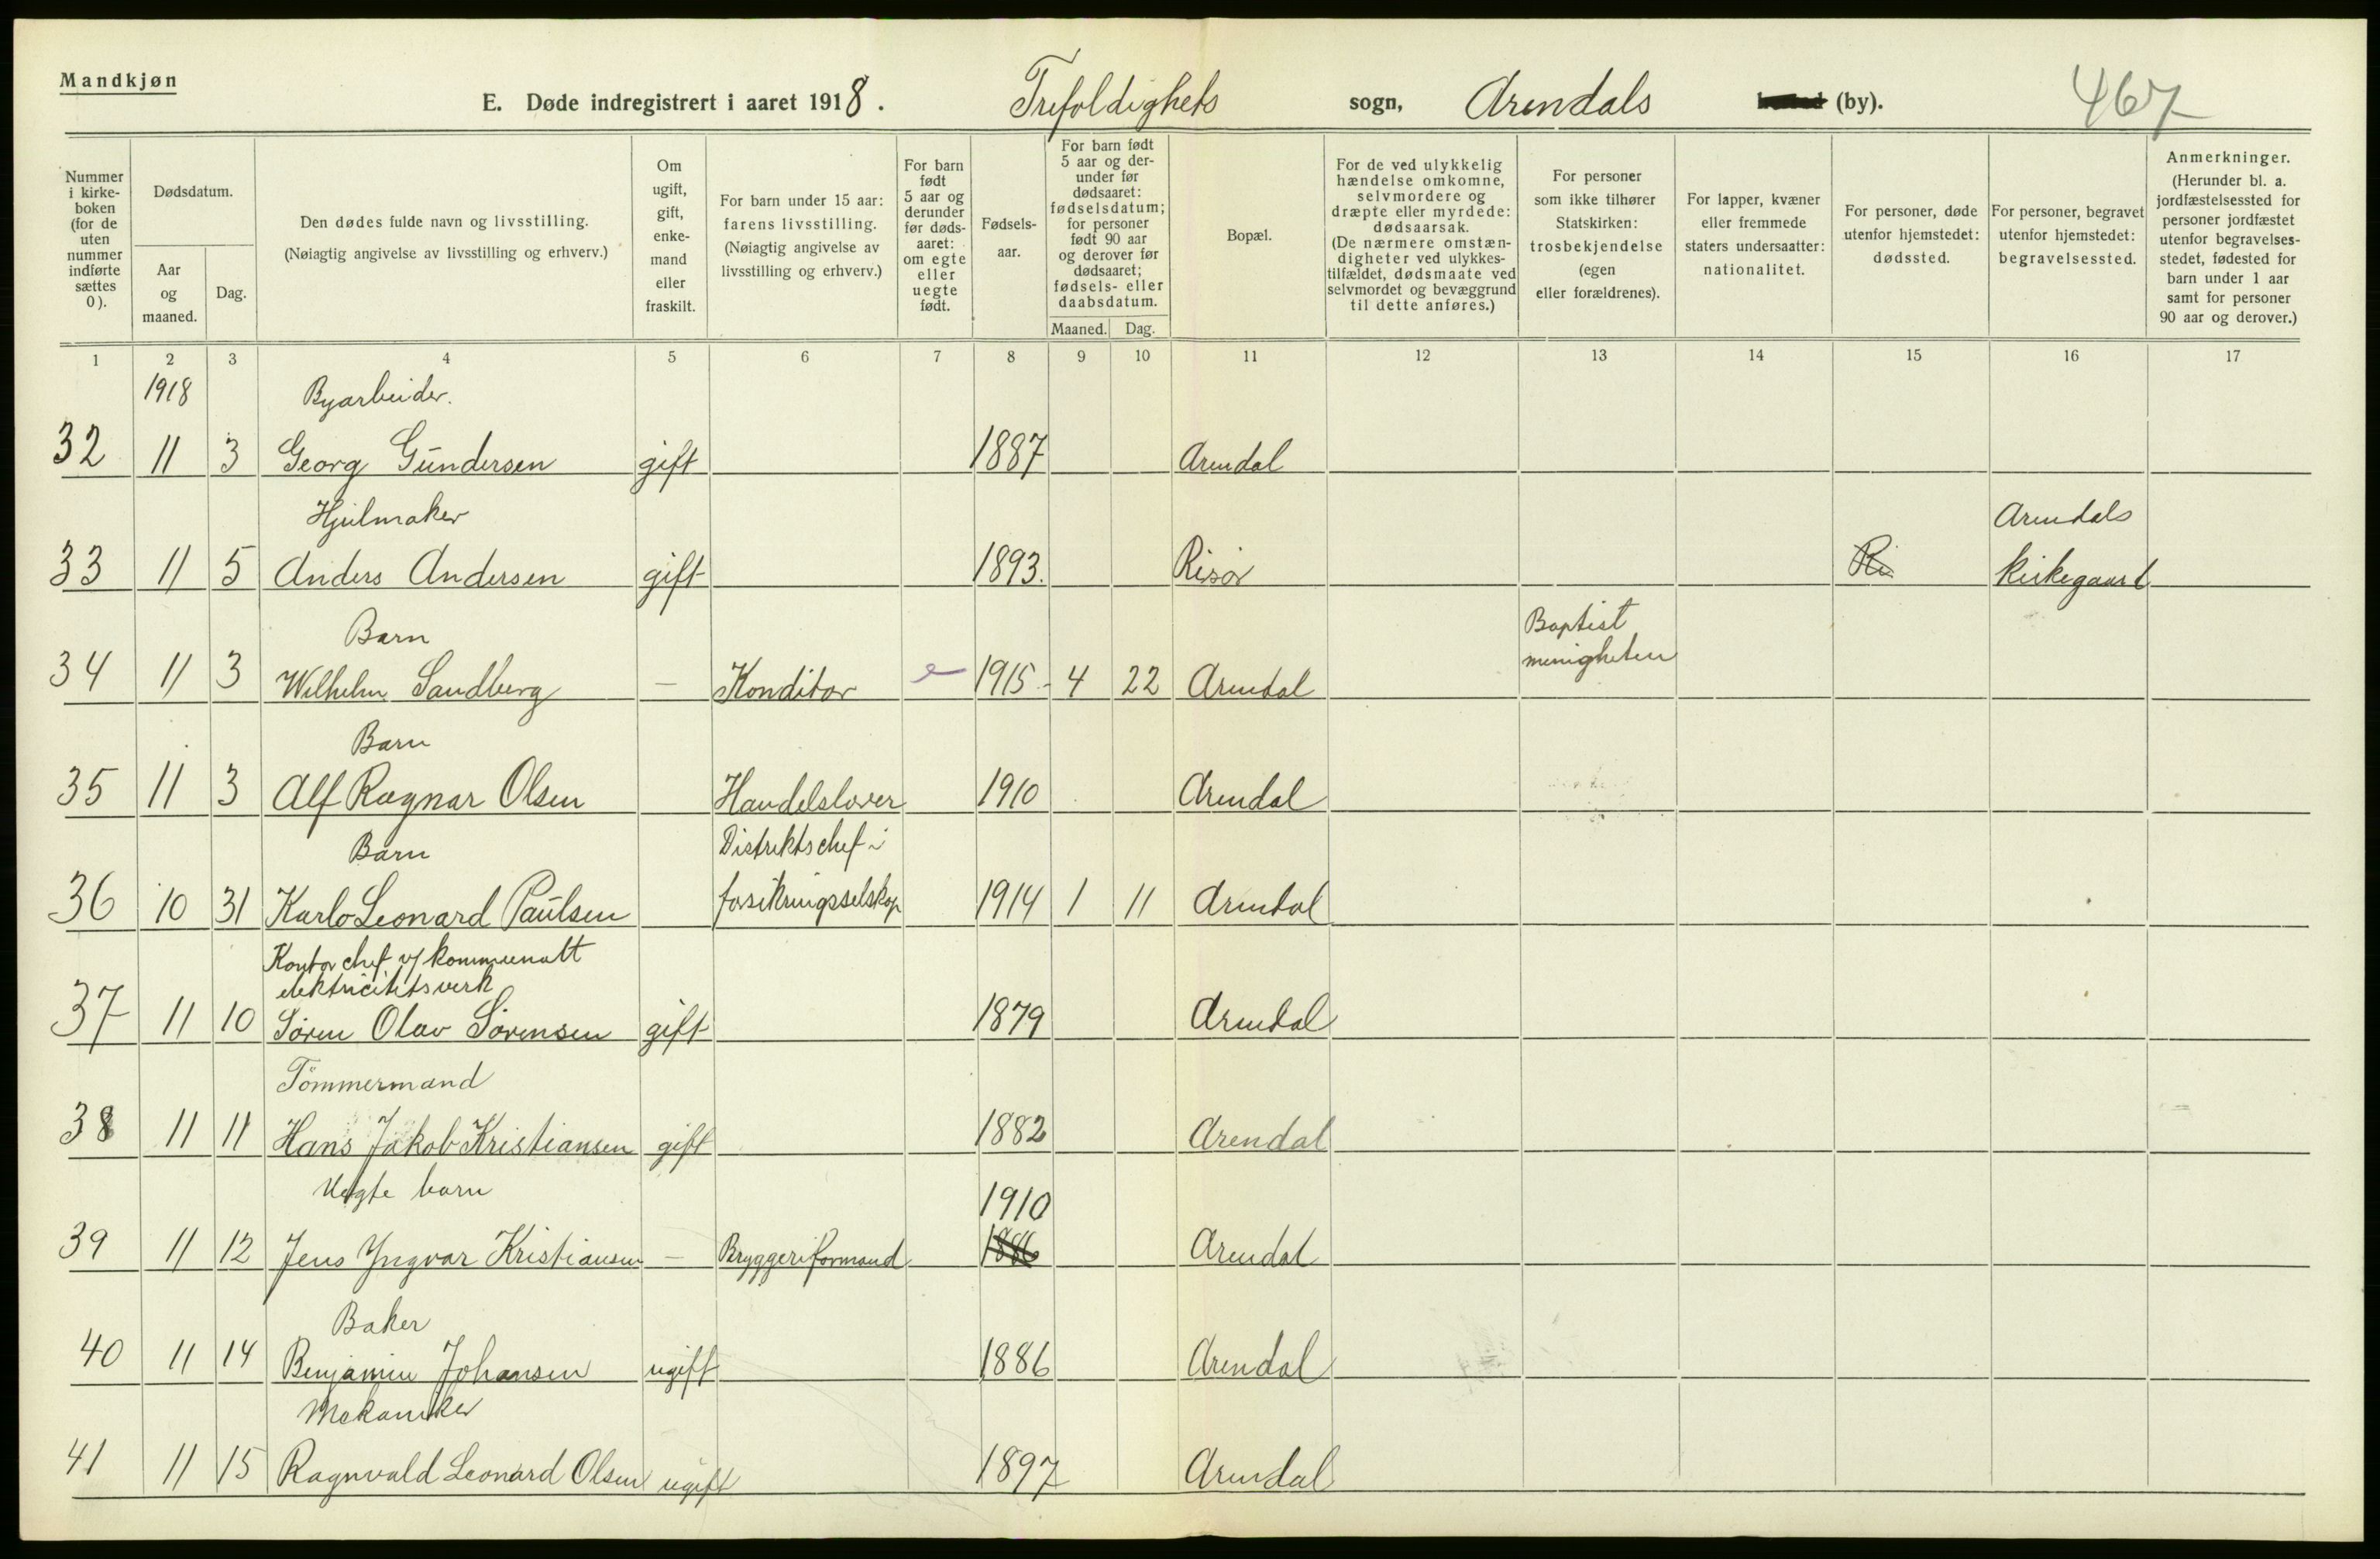 Mandkjøn
E. Døde indregistrert i aaret 1918. Trefoldighets sogn, Arendals (by). 467
Nummer i kirke-boken (for de uten nummer indførte sættes 0).
Dødsdatum.
Aar og maaned.
Dag.
Den dødes fulde navn og livsstilling.
(Nøiagtig angivelse av livsstilling og erhverv.)
Om ugift, gift, enke-mand eller fraskilt.
For barn under 15 aar: farens livsstilling. (Nøiagtig angivelse av livsstilling og erhverv.)
For barn født 5 aar og derunder før døds-aaret: om egte eller uegte født.
Fødsels-aar.
For barn født 5 aar og der-under før dødsaaret: fødselsdatum; for personer født 90 aar og derover før dødsaaret; fødsels- eller daabsdatum.
Maaned. Dag.
Bopæl.
For de ved ulykkelig hændelse omkomne, selvmordere og dræpte eller myrdede: dødsaarsak. (De nærmere omstæn-digheter ved ulykkes-tilfældet, dødsmaate ved selvmordet og bevæggrund til dette anføres.)
For personer som ikke tilhører Statskirken: trosbekjendelse (egen eller forældrenes).
For lapper, kvæner eller fremmede staters undersaatter: nationalitet.
For personer, døde utenfor hjemstedet: dødssted.
For personer, begravet utenfor hjemstedet: begravelsessted.
Anmerkninger. (Herunder bl. a. jordfæstelsessted for personer jordfæstet utenfor begravelses-stedet, fødested for barn under 1 aar samt for personer 90 aar og derover.)
1 2 3 4 5 6 7 8 9 10 11 12 13 14 15 16 17
1918 Byarbeider.
32 11 3 Georg Gundersen gift 1887 Arendal
Hjulmaker Arendals
33 11 5 Anders Andersen gift 1893. Risør Ri kirkegaard
Barn Baptist
menigheten
34 11 3 Wilhelm Sandberg — Konditor e 1915 4 22 Arendal
Barn
35 11 3 Alf Ragnar Olsen Handelslærer 1910 Arendal
Barn Distriktschef i
36 10 31 Karlo Leonard Paulsen forsikringsselskap 1914 1 11 Arendal
Kontorchef v/ kommunalt
elektricitetsverk
37 11 10 Søren Olav Sørensen gift 1879 Arendal
Tömmermand
38 11 11 Hans Jakob Kristiansen gift 1882 Arendal
Uegte barn 1910
39 11 12 Jens Yngvar Kristiansen — Bryggeriformand 1886 Arendal
Baker
40 11 14 Benjamin Johansen ugift 1886 Arendal
Mekaniker
41 11 15 Ragnvald Leonard Olsen ugift 1897 Arendal